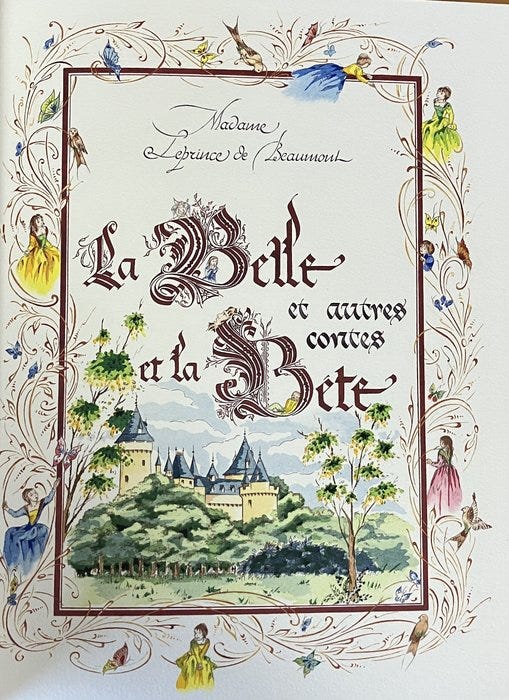 Madame
Leprince de Beaumont
La Belle
et autres
contes
et la Bête